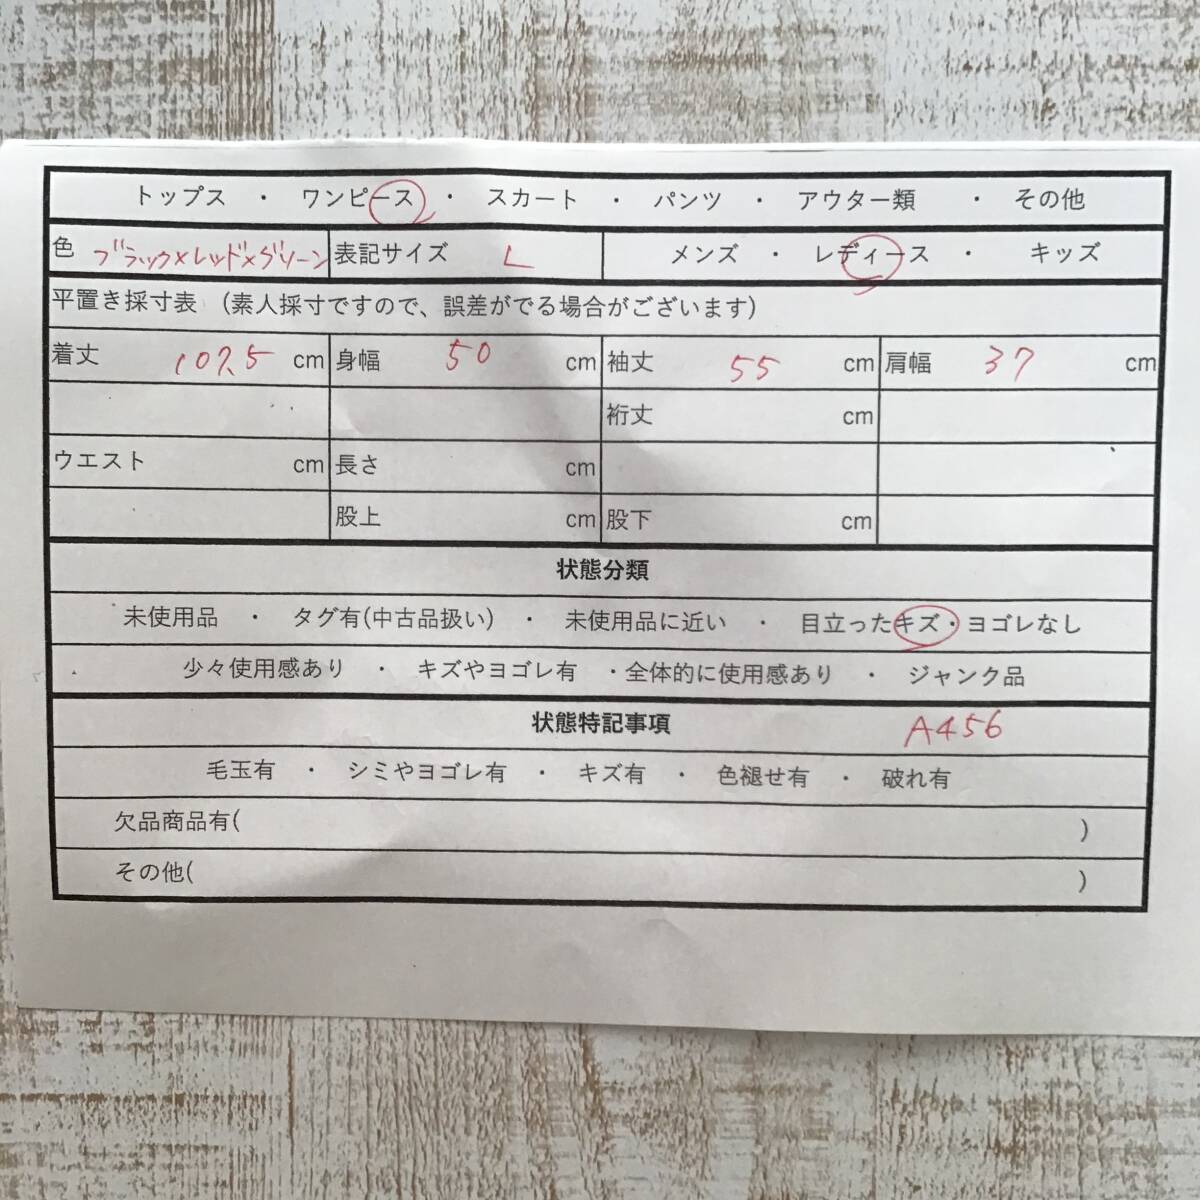 トップス ・ ワンピース ・ スカート ・ パンツ ・ アウター類 ・ その他
色 ブラック×レッド×グリーン 表記サイズ L メンズ ・ レディース ・ キッズ
平置き採寸表 (素人採寸ですので、誤差がでる場合がございます)
着丈 107.5 cm 身幅 50 cm 袖丈 55 cm 肩幅 37 cm
裄丈 cm
ウエスト cm 長さ cm
股上 cm 股下 cm
状態分類
未使用品 ・ タグ有(中古品扱い) ・ 未使用品に近い ・ 目立ったキズ・ヨゴレなし
少々使用感あり ・ キズやヨゴレ有 ・全体的に使用感あり ・ ジャンク品
状態特記事項 A456
毛玉有 ・ シミやヨゴレ有 ・ キズ有 ・ 色褪せ有 ・ 破れ有
欠品商品有( )
その他( )